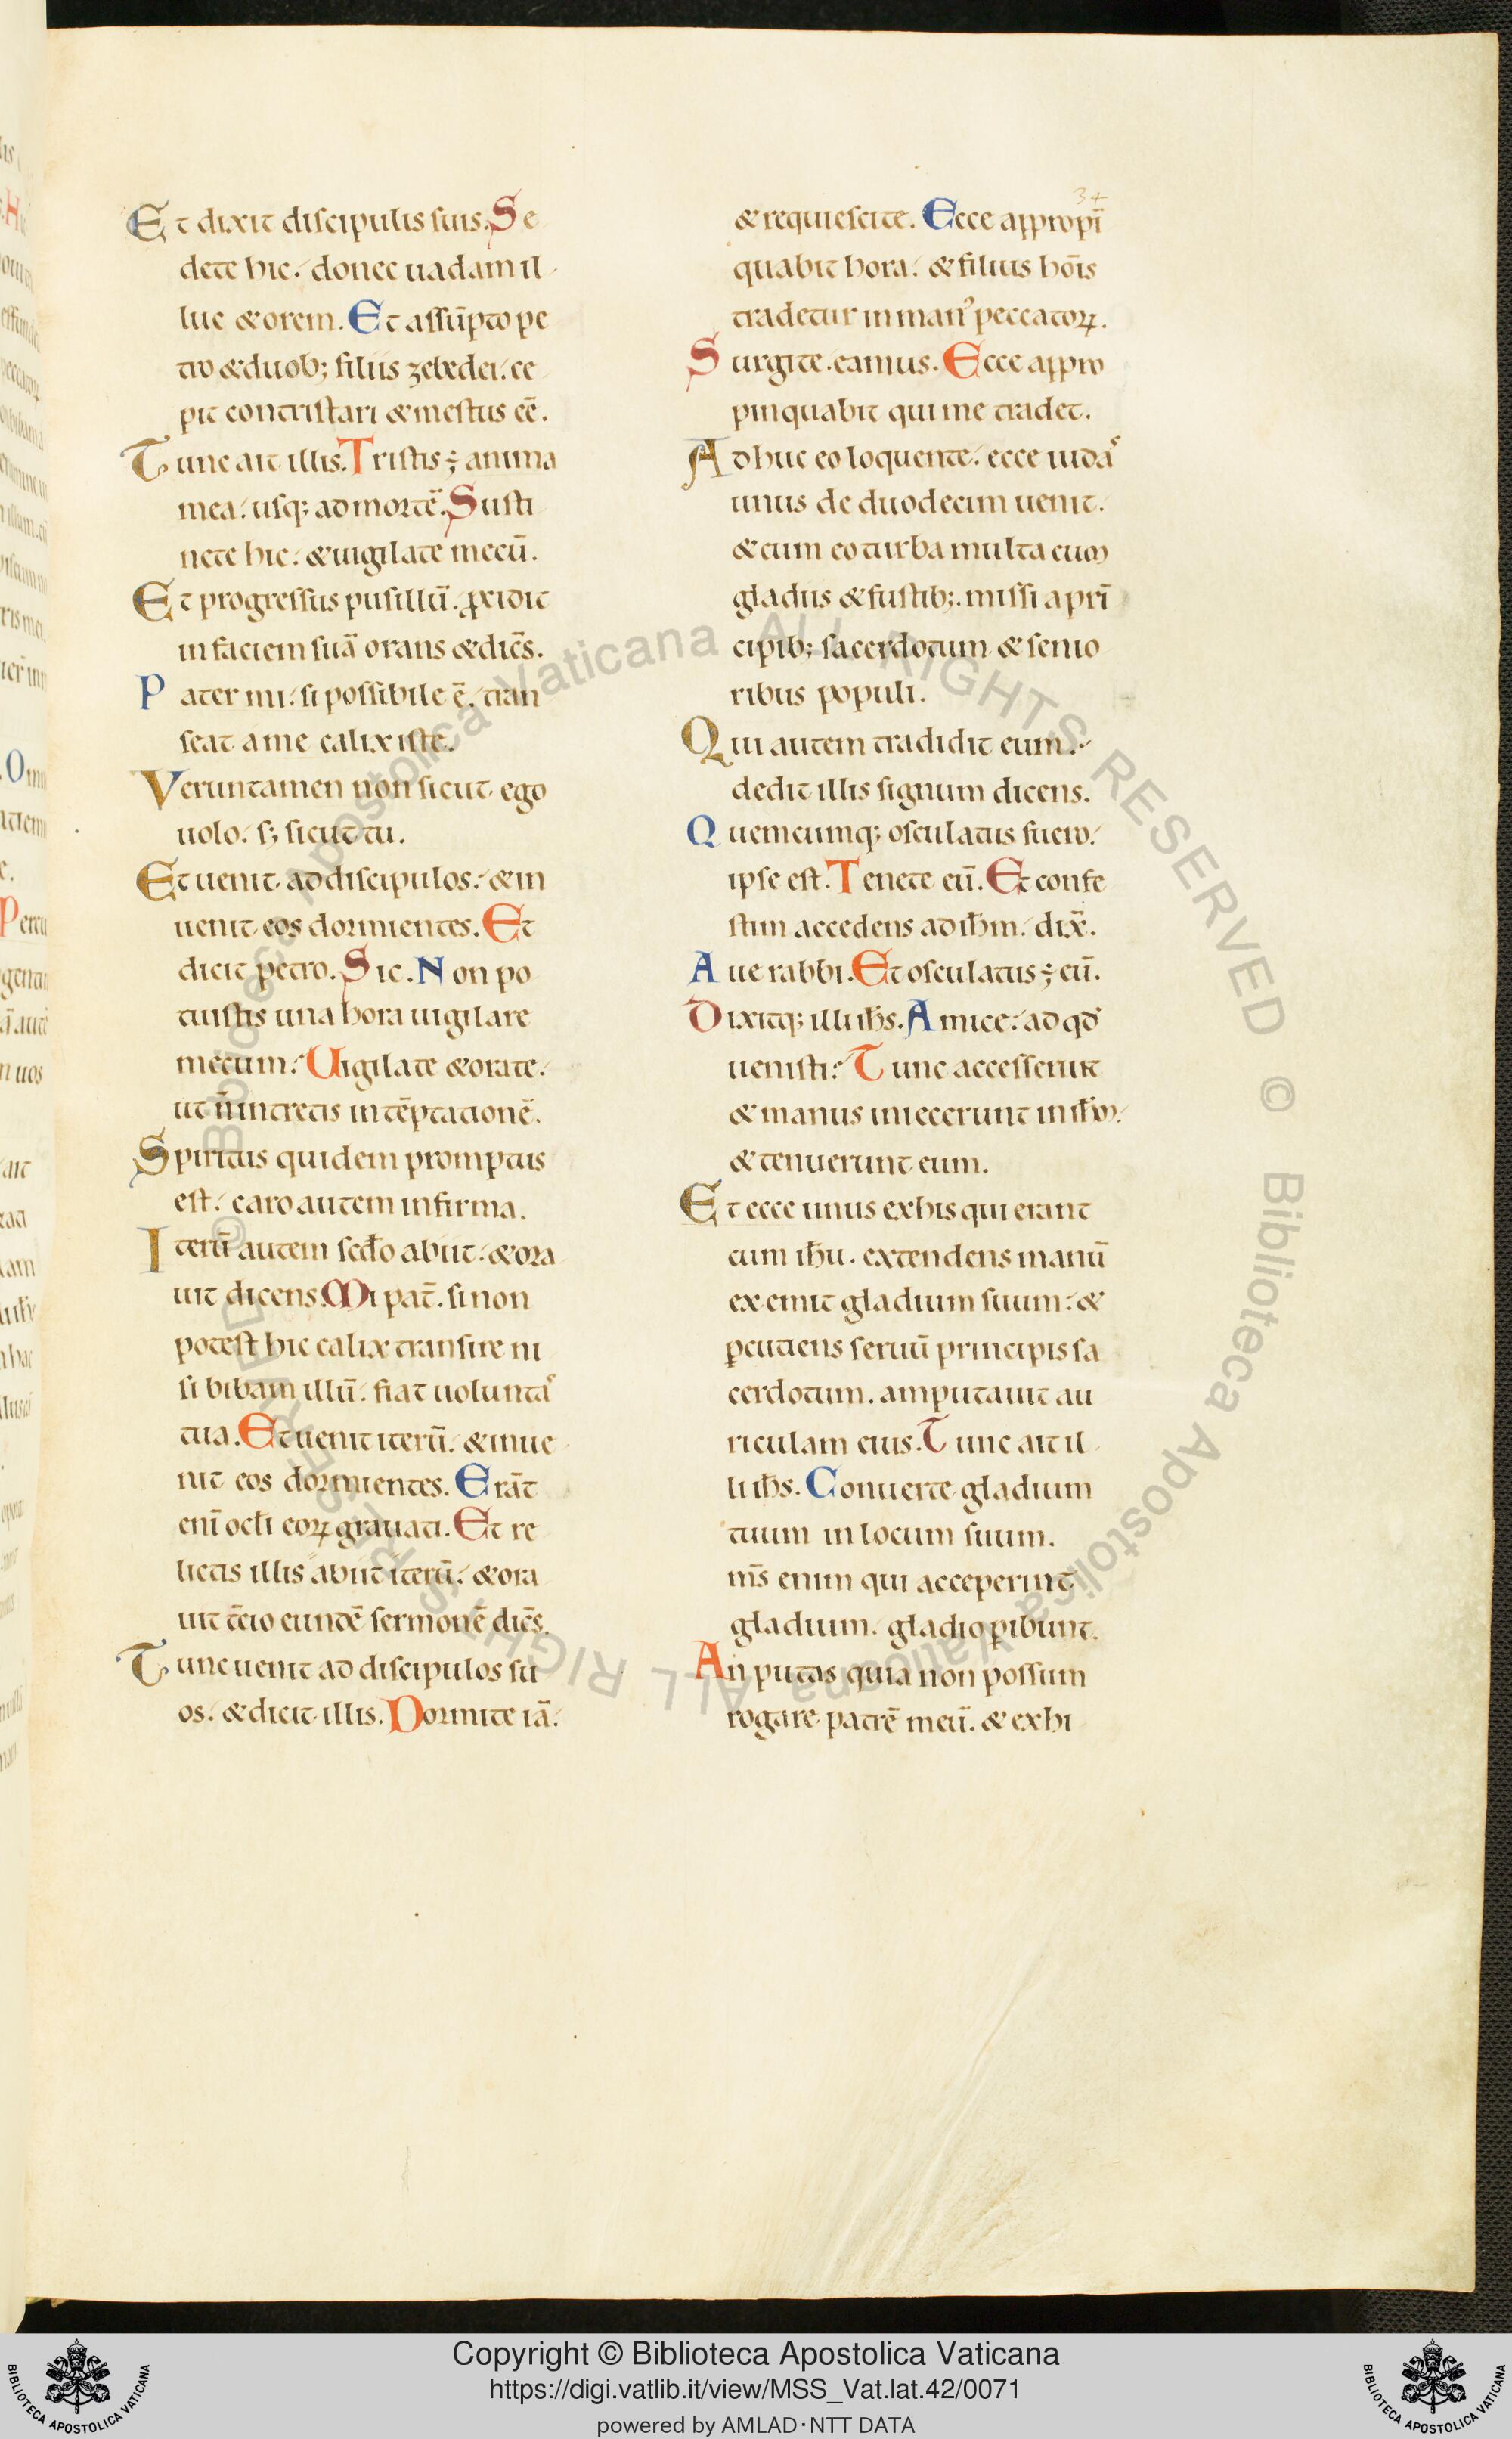 Et dixit discipulis suis. Se
dete hic. donec uadam il
luc & orem. Et assūpto pe
tro & duob; filiis zebedei. ce
pit contristari & mestus eē.
Tunc ait illis. Tristis ÷ anima
mea. usq; ad mortē. Susti
nete hic. & uigilate mecū.
Et progressus pusillū. ꝓcidit
in faciem suā orans & dicēs.
Pater mi. si possibile ē. tran
seat a me calix iste.
Veruntamen non sicut ego
uolo. s; sicut tu.
Et uenit ad discipulos. & in
uenit eos dormientes. Et
dicit petro. Sic. Non po
tuistis una hora uigilare
mecum? Uigilate & orate.
ut n̄ intretis in tēptationē.
Spiritus quidem promptus
est. caro autem infirma.
Iterū autem scd̄o abiit. & ora
uit dicens. Mi pat̄. si non
potest hic calix transire ni
si bibam illū. fiat uoluntaˢ
tua. Et uenit iterū. & inue
nit eos dormientes. Erāt
enī ocl̄i eoꝝ grauati. Et re
lictis illis abiit iterū. & ora
uit t̄cio eundē sermonē dicēs.
Tunc uenit ad discipulos su
os. & dicit illis. Dormite iā.
34
& requiescite. Ecce appropī
quabit hora. & filius hōis
tradetur in manꝰ peccatoꝝ.
Surgite. eamus. Ecce appro
pinquabit qui me tradet.
Adhuc eo loquente. ecce iudaˢ
unus de duodecim uenit.
& cum eo turba multa cum
gladiis & fustib;. missi a prī
cipib; sacerdotum & senio
ribus populi.
Qui autem tradidit eum.
dedit illis signum dicens.
Quemcumq; osculatus fuero.
ipse est. Tenete eū. Et confe
stim accedens ad ih̄m. dix̄.
Aue rabbi. Et osculatus ÷ eū.
Dixitq; illi ih̄s. Amice. ad qd̄
uenisti? Tunc accesserunt
& manus iniecerunt in ih̄m.
& tenuerunt eum.
Et ecce unus ex his qui erant
cum ih̄u. extendens manū
exemit gladium suum. &
ꝑcutiens seruū principis sa
cerdotum. amputauit au
riculam eius. Tunc ait il
li ih̄s. Conuerte gladium
tuum in locum suum.
m̄s enim qui acceperint
gladium. gladio ꝑibunt.
An putas quia non possum
rogare patrē meū. & exhi
Copyright © Biblioteca Apostolica Vaticana
https://digi.vatlib.it/view/MSS_Vat.lat.42/0071
powered by AMLAD·NTT DATA
BIBLIOTECA APOSTOLICA VATICANA
BIBLIOTECA APOSTOLICA VATICANA
© Biblioteca Apostolica Vaticana ALL RIGHTS RESERVED
© Biblioteca Apostolica Vaticana ALL RIGHTS RESERVED